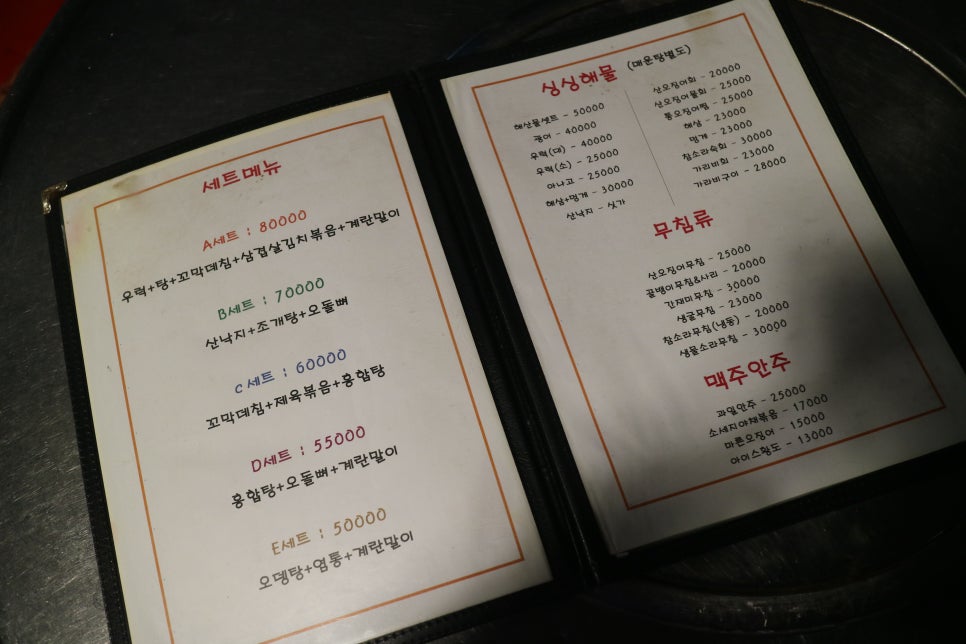 세트메뉴
A세트 : 80000
우럭+탕+꼬막데침+삼겹살김치볶음+계란말이
B세트 : 70000
산낙지+조개탕+오돌뼈
C세트 : 60000
꼬막데침+제육볶음+홍합탕
D세트 : 55000
홍합탕+오돌뼈+계란말이
E세트 : 50000
오뎅탕+염통+계란말이
싱싱해물 (매운탕별도)
해산물셋트 - 50000
광어 - 40000
우럭(대) - 40000
우럭(소) - 25000
아나고 - 25000
해삼+멍게 - 30000
산낙지 - 싯가
산오징어회 - 20000
산오징어물회 - 25000
통오징어찜 - 25000
해삼 - 23000
멍게 - 23000
참소라숙회 - 30000
가리비회 - 23000
가라비구이 - 28000
무침류
산오징어무침 - 25000
골뱅이무침&사리 - 20000
간재미무침 - 30000
생굴무침 - 23000
참소라무침(냉동) - 20000
생물소라무침 - 30000
맥주안주
과일안주 - 25000
소세지야채볶음 - 17000
마른오징어 - 15000
아이스황도 - 13000